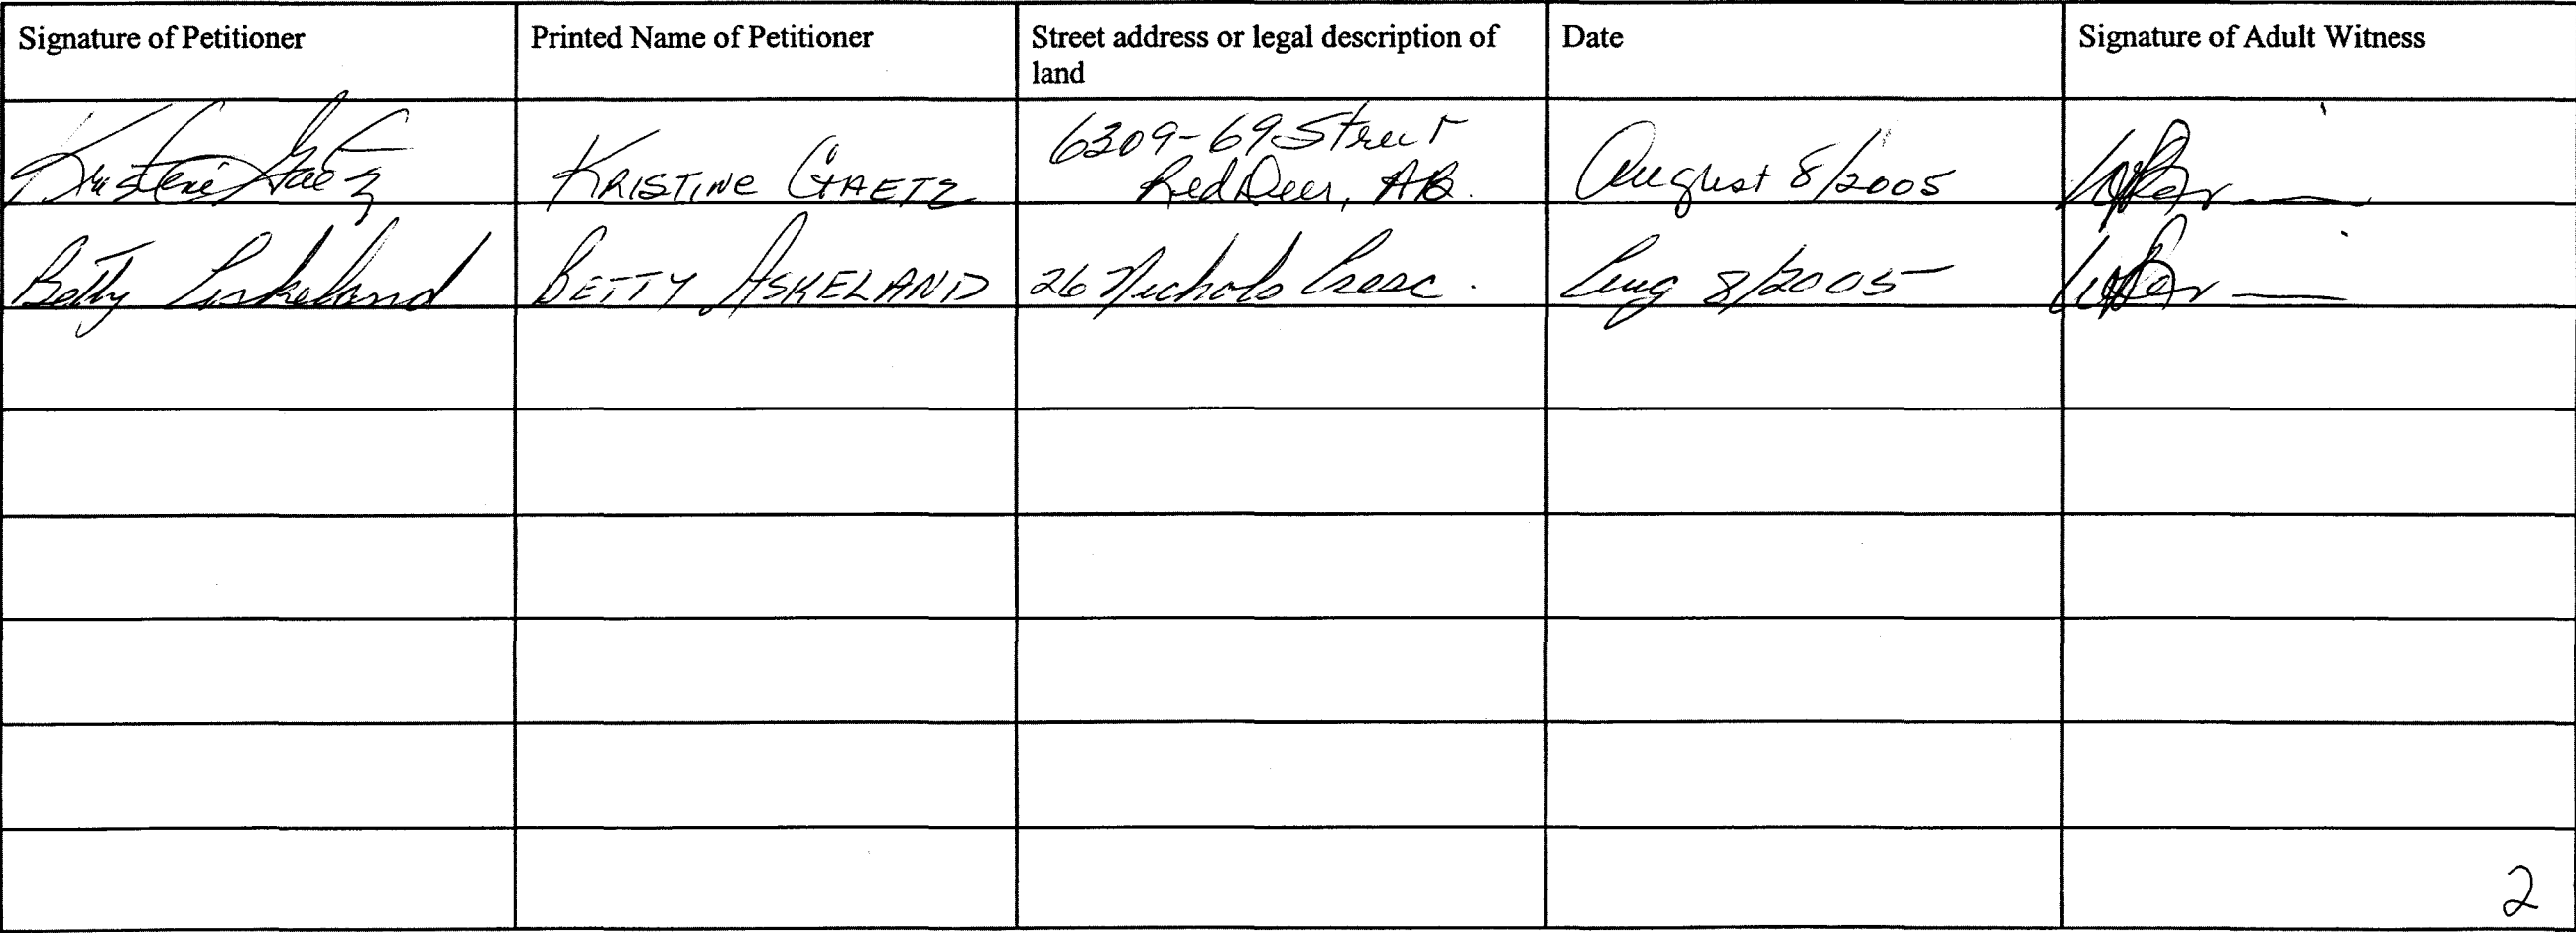 Signature of Petitioner
Printed Name of Petitioner
Street address or legal description of
land
Date
Signature of Adult Witness
Kristine Gaetz
KRISTINE GAETZ
6309-69 Street
Red Deer, AB.
August 8/2005
Betty Askeland
BETTY ASKELAND
26 Nichols Cresc.
Aug 8/2005
2